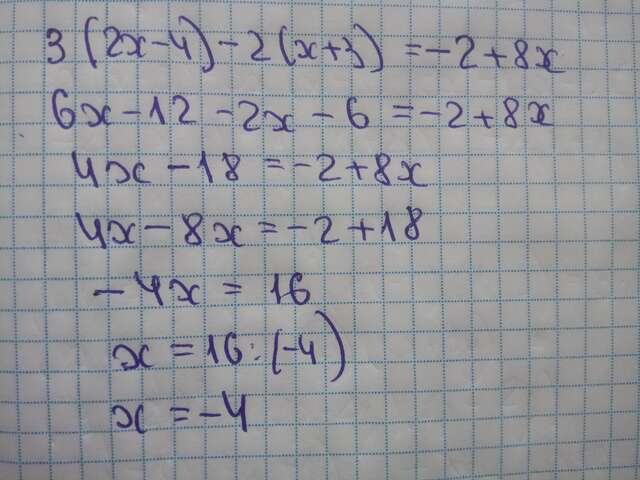 3(2x-4)-2(x+3)=-2+8x
6x-12-2x-6=-2+8x
4x-18=-2+8x
4x-8x=-2+18
-4x=16
x=16:(-4)
x=-4